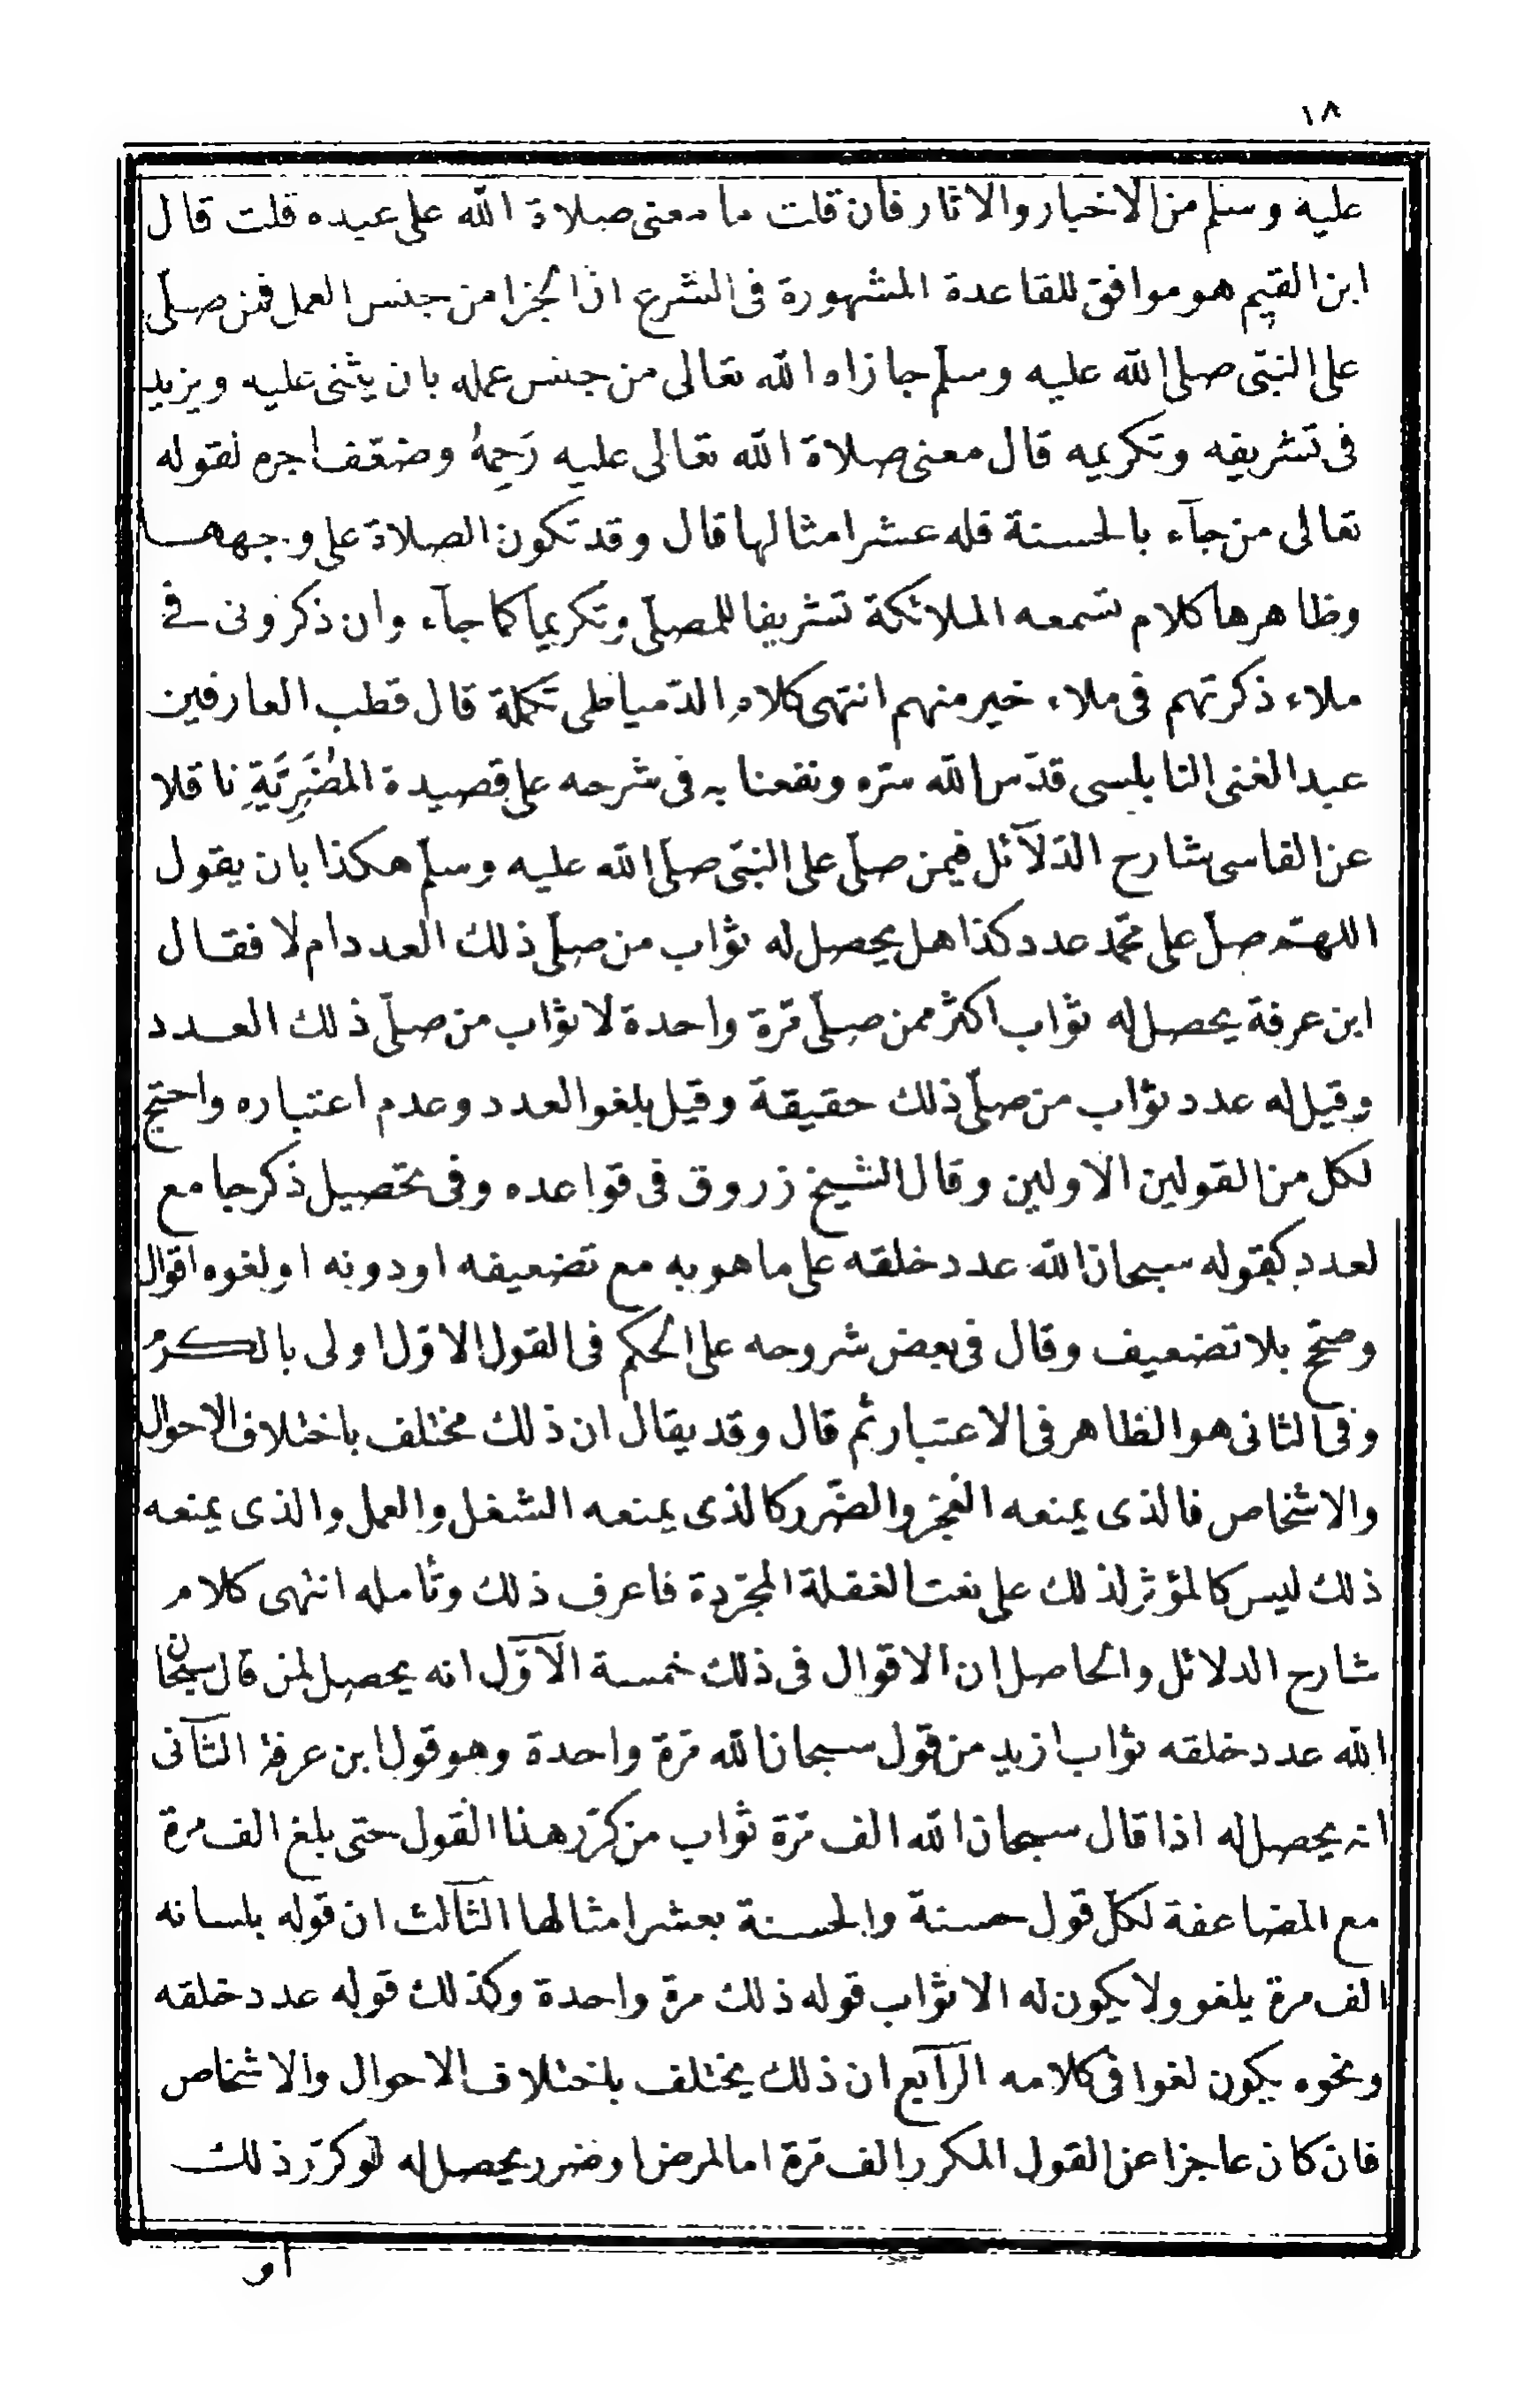 ١٨
عليه وسلم من الاخبار والاثار فان قلت ما معنى صلاة الله على عبده قلت قال
ابن القيم هو موافق للقاعدة المشهورة فى الشرع ان الجزا من جنس العمل فمن صلّى
على النبىّ صلى الله عليه وسلّم جازاه الله تعالى من جنس عمله بان يثنى عليه ويزيد
فى تشريفه وتكريمه قال معنى صلاة الله تعالى عليه رَحِمَهُ وضعّف اجره لقوله
تعالى من جآء بالحسنة فله عشر امثالها قال وقد تكون الصلاة على وجهها
وظاهرها كلام تسمعه الملائكة تشريفا للمصلّى وتكريماً كما جآء وان ذكرونى فى
ملاء ذكرتهم فى ملاء خير منهم انتهى كلام الدّمياطى تكملة قال قطب العارفين
عبد الغنى النابلسى قدّس الله سرّه ونفعنا به فى شرحه على قصيدة المُضَرِيَّةِ ناقلا
عن الفاسى شارح الدّلآئل فيمن صلّى على النبىّ صلّى الله عليه وسلّم هكذا بان يقول
اللهمّ صلّ على محّمد عدد كذا هل يحصل له ثواب من صلّى ذلك العدد ام لا فقال
ابن عرفة يحصل له ثواب اكثر ممن صلّى مّرة واحدة لا ثواب من صلّى ذلك العدد
وقيل له عدد ثواب من صلّى ذلك حقيقة وقيل بلغو العدد وعدم اعتباره واحتج
لكل من القولين الاولين وقال الشيخ زروق فى قواعده وفى تحصيل ذكر جامع
لعدد كقوله سبحان الله عدد خلقه على ما هو به مع تضعيفه او دونه او لغوه اقوال
وصحّح بلا تضعيف وقال فى بعض شروحه على الحكم فى القول الاوّل اولى بالكرم
وفى الثانى هو الظاهر فى الاعتبار ثم قال وقد يقال ان ذلك مختلف باختلاف الاحوال
والاشخاص فالذى يمنعه العجز والضّرر كالذى يمنعه الشغل والعمل والذى يمنعه
ذلك ليس كالمؤثر لذلك على نعت الغفلة المجّردة فاعرف ذلك وتأمله انتهى كلام
شارح الدلائل والحاصل ان الاقوال فى ذلك خمسة الآوّل انه يحصل لمن قال سبحان
الله عدد خلقه ثواب ازيد من قول سبحان الله مّرة واحدة وهو قول ابن عرفة الثآنى
انه يحصل له اذا قال سبحان الله الف مّرة ثواب من كرّر هذا القول حتى بلغ الف مرة
مع المضاعفة لكلّ قول حسنة والحسنة بعشر امثالها الثآلث ان قوله بلسانه
الف مرة يلغو ولا يكون له الا ثواب قوله ذلك مرة واحدة وكذلك قوله عدد خلقه
ونحوه يكون لغوا فى كلامه الرآبع ان ذلك يختلف باختلاف الاحوال والاشخاص
فان كان عاجزا عن القول المكرر الف مّرة اما لمرض او ضرر يحصل له لو كرّر ذلك
او